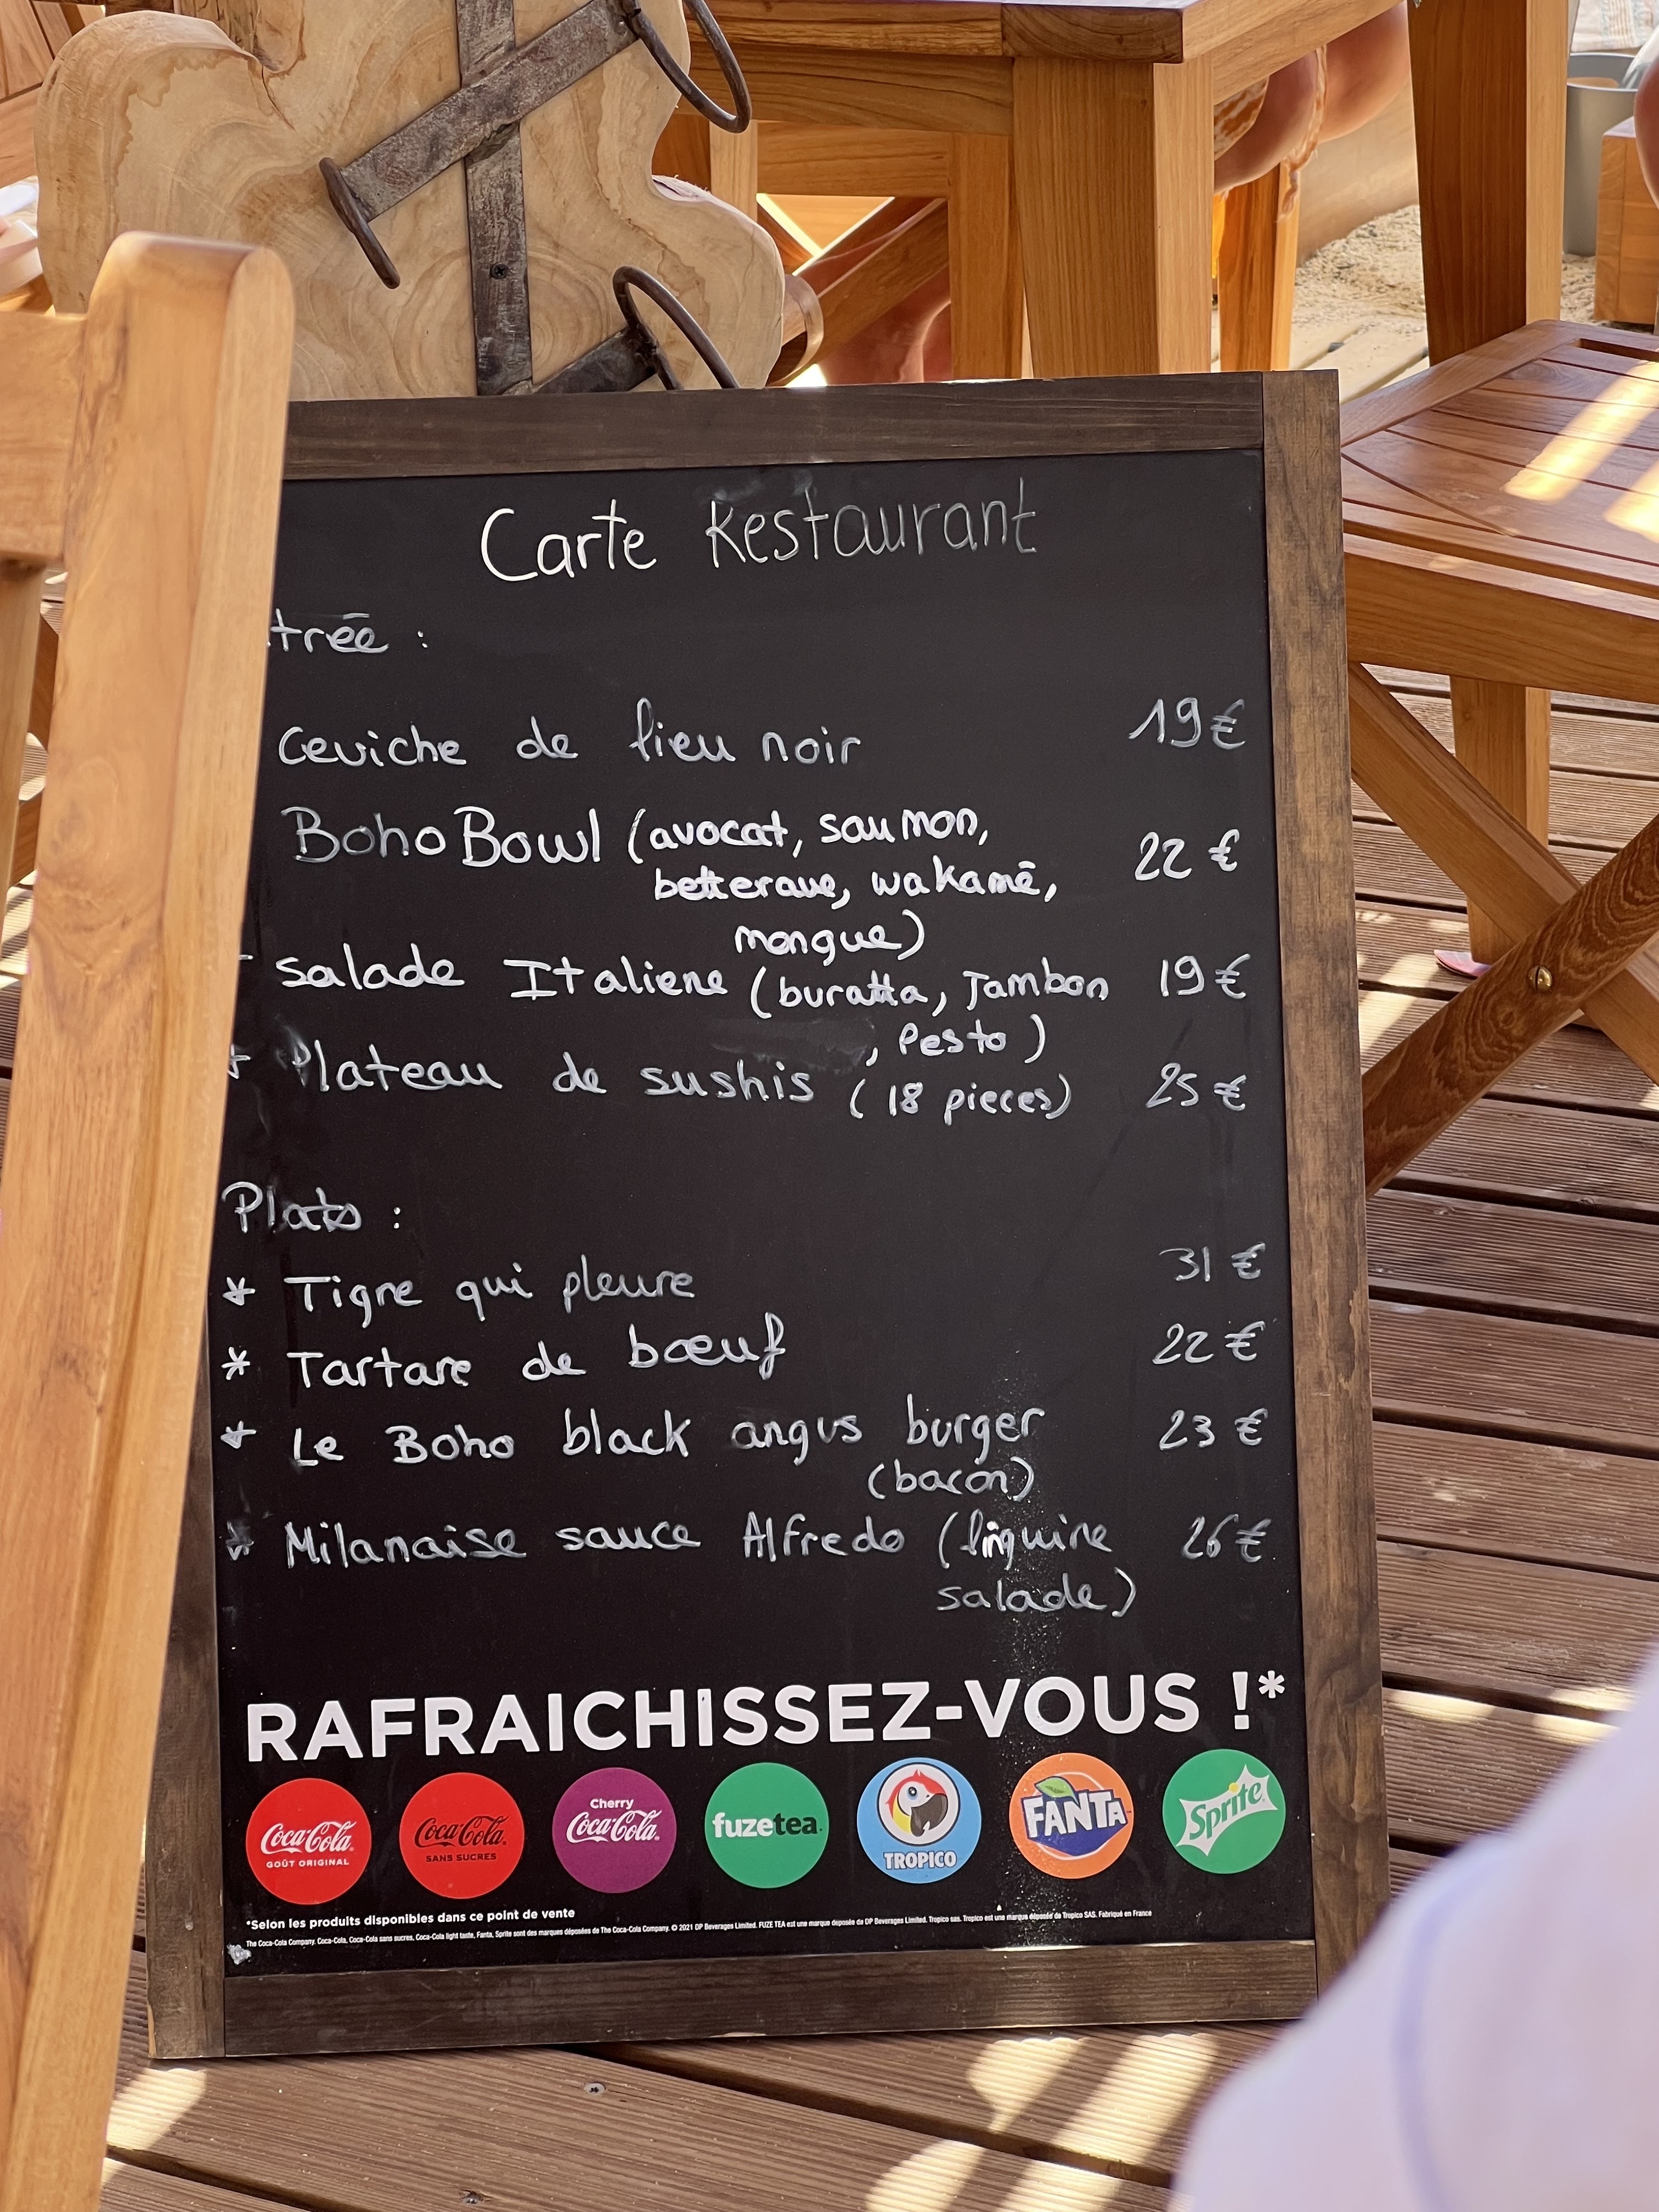 Carte Restaurant
trée :
Ceviche de lieu noir 19€
Boho Bowl (avocat, saumon, 22 €
betterave, wakamē,
mangue)
- salade Italiene (buratta, Jambon 19€
, Pesto )
* Plateau de sushis ( 18 pieces) 25 €
Plats :
* Tigre qui pleure 31 €
* Tartare de bœuf 22 €
* Le Boho black angus burger 23 €
(bacon)
* Milanaise sauce Alfredo (linguine 26€
salade)
RAFRAICHISSEZ-VOUS !*
Coca-Cola
GOÛT ORIGINAL
Coca-Cola
SANS SUCRES
Cherry
Coca-Cola
fuzetea
TROPICO
FANTA
Sprite
*Selon les produits disponibles dans ce point de vente
The Coca-Cola Company. Coca-Cola, Coca-Cola sans sucres, Coca-Cola light taste, Fanta, Sprite sont des marques déposées de The Coca-Cola Company. © 2021 DP Beverages Limited. FUZE TEA est une marque déposée de DP Beverages Limited. Tropico sas. Tropico est une marque déposée de Tropico SAS. Fabriqué en France